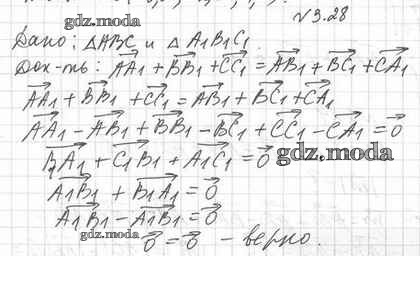 gdz.moda
№ 3.28
Дано: △ABC и △ A₁B₁C₁.
Док-ть: AA₁ + BB₁ + CC₁ = AB₁ + BC₁ + CA₁
AA₁ + BB₁ + CC₁ = AB₁ + BC₁ + CA₁
AA₁ - AB₁ + BB₁ - BC₁ + CC₁ - CA₁ = 0
B₁A₁ + C₁B₁ + A₁C₁ = 0
gdz.moda
A₁B₁ + B₁A₁ = 0
A₁B₁ - A₁B₁ = 0
gdz.moda
0 = 0 - верно.